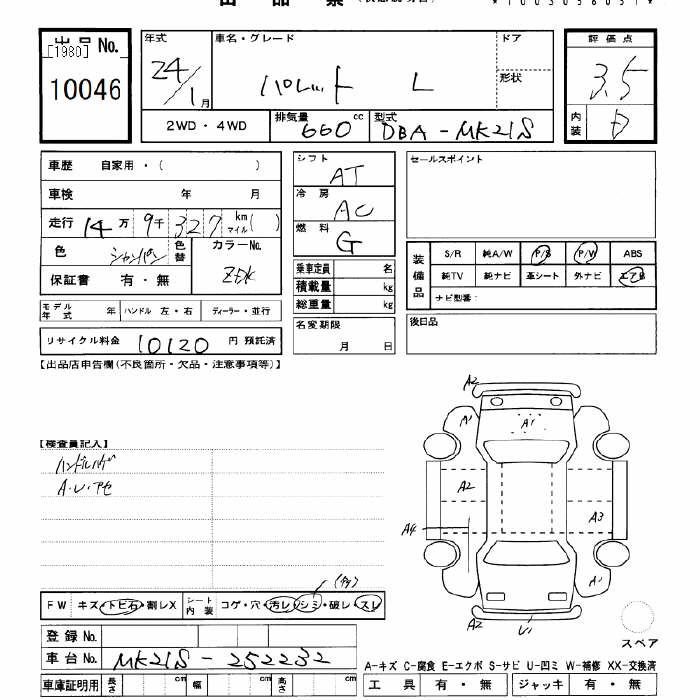 出品票
*1003056051*
出品 No.
[1980]
10046
年式
24/1月
車名・グレード
パレット L
ドア
形状
2WD・4WD
排気量
660 cc
型式
DBA-MK21S
評価点
3.5
内装
D
車歴 自家用・( )
車検 年 月
走行 14万 9千 327 km マイル( )
色 シャンパン 色替
カラーNo.
ZEK
保証書 有・無
モデル年式 年
ハンドル 左・右
ディーラー・並行
リサイクル料金 10120 円 預託済
シフト
AT
冷房
AC
燃料
G
乗車定員 名
積載量 kg
総重量 kg
名変期限
月 日
セールスポイント
装備品
S/R 純A/W P/S P/W ABS
純TV 純ナビ 革シート 外ナビ エアB
ナビ型番:
後日品
【出品店申告欄(不良箇所・欠品・注意事項等)】
【検査員記入】
ハンドルハゲ
A・U・アセ
(多)
FW キズ・トビ石・割レX
シート内装 コゲ・穴・汚レ・シミ・破レ・スレ
登録 No.
車台 No. MK21S-252232
車庫証明用 長さ cm 幅 cm 高さ cm
A2
A1
A1
A2
A4
A3
A1
A2
U1
スペア
A-キズ C-腐食 E-エクボ S-サビ U-凹ミ W-補修 XX-交換済
工具 有・無
ジャッキ 有・無